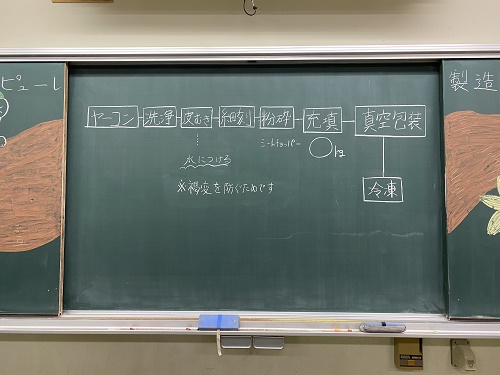 ピューレ
製造
ヤーコン 洗浄 皮むき 細刻 粉砕 充填 真空包装
ミートチョッパー
kg
水につける
※褐変を防ぐためです
冷凍